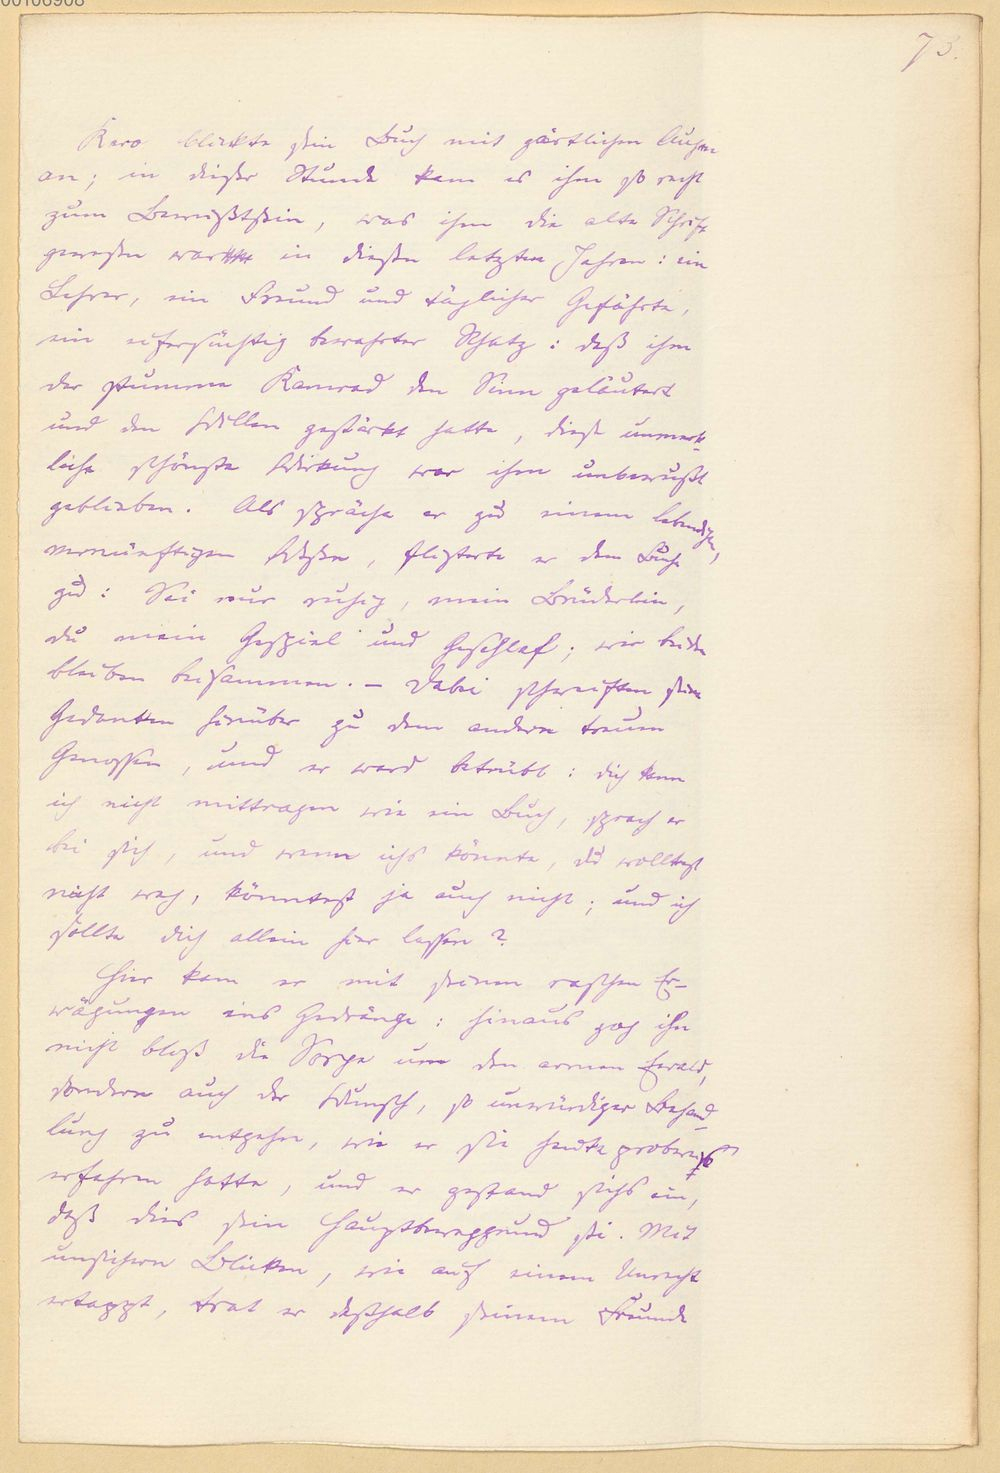 00106908
73.
Karo blickte sein Buch mit zärtlichen Augen
an; in dieser Stunde kam es ihm so recht
zum Bewußtsein, was ihm die alte Schrift
gewesen war in diesen letzten Jahren: ein
Lehrer, ein Freund und täglicher Gefährte,
ein eifersüchtig bewahrter Schatz: daß ihm
der stumme Kamrad den Sinn geläutert
und den Willen gestärkt hatte, diese unmerk-
liche schönste Wirkung war ihm unbewußt
geblieben. Als spräche er zu einem lebendigen,
vernünftigen Wesen, flisterte er dem Buche
zu: Sei nur ruhig, mein Brüderlein,
du mein Gespiel und Geschlaf; wir beide
bleiben beisammen. – Dabei schweiften seine
Gedanken hinüber zu dem andern treuen
Genossen, und er ward betrübt: dich kann
ich nicht mittragen wie ein Buch, sprach er
bei sich, und wenn ichs könnte, du wolltest
nicht weg, könntest ja auch nicht; und ich
sollte dich allein hier lassen?
Hier kam er mit seinen raschen Er-
wägungen ins Gedränge: hinaus zog ihn
nicht bloß die Sorge um den armen Ewald,
sondern auch der Wunsch, so unwürdiger Behand-
lung zu entgehen, wie er sie heute probeweise
erfahren hatte, und er gestand sichs ein,
daß dies sein Hauptbeweggrund sei. Mit
unsichern Blicken, wie auf einem Unrecht
ertappt, trat er deßhalb seinem Freunde